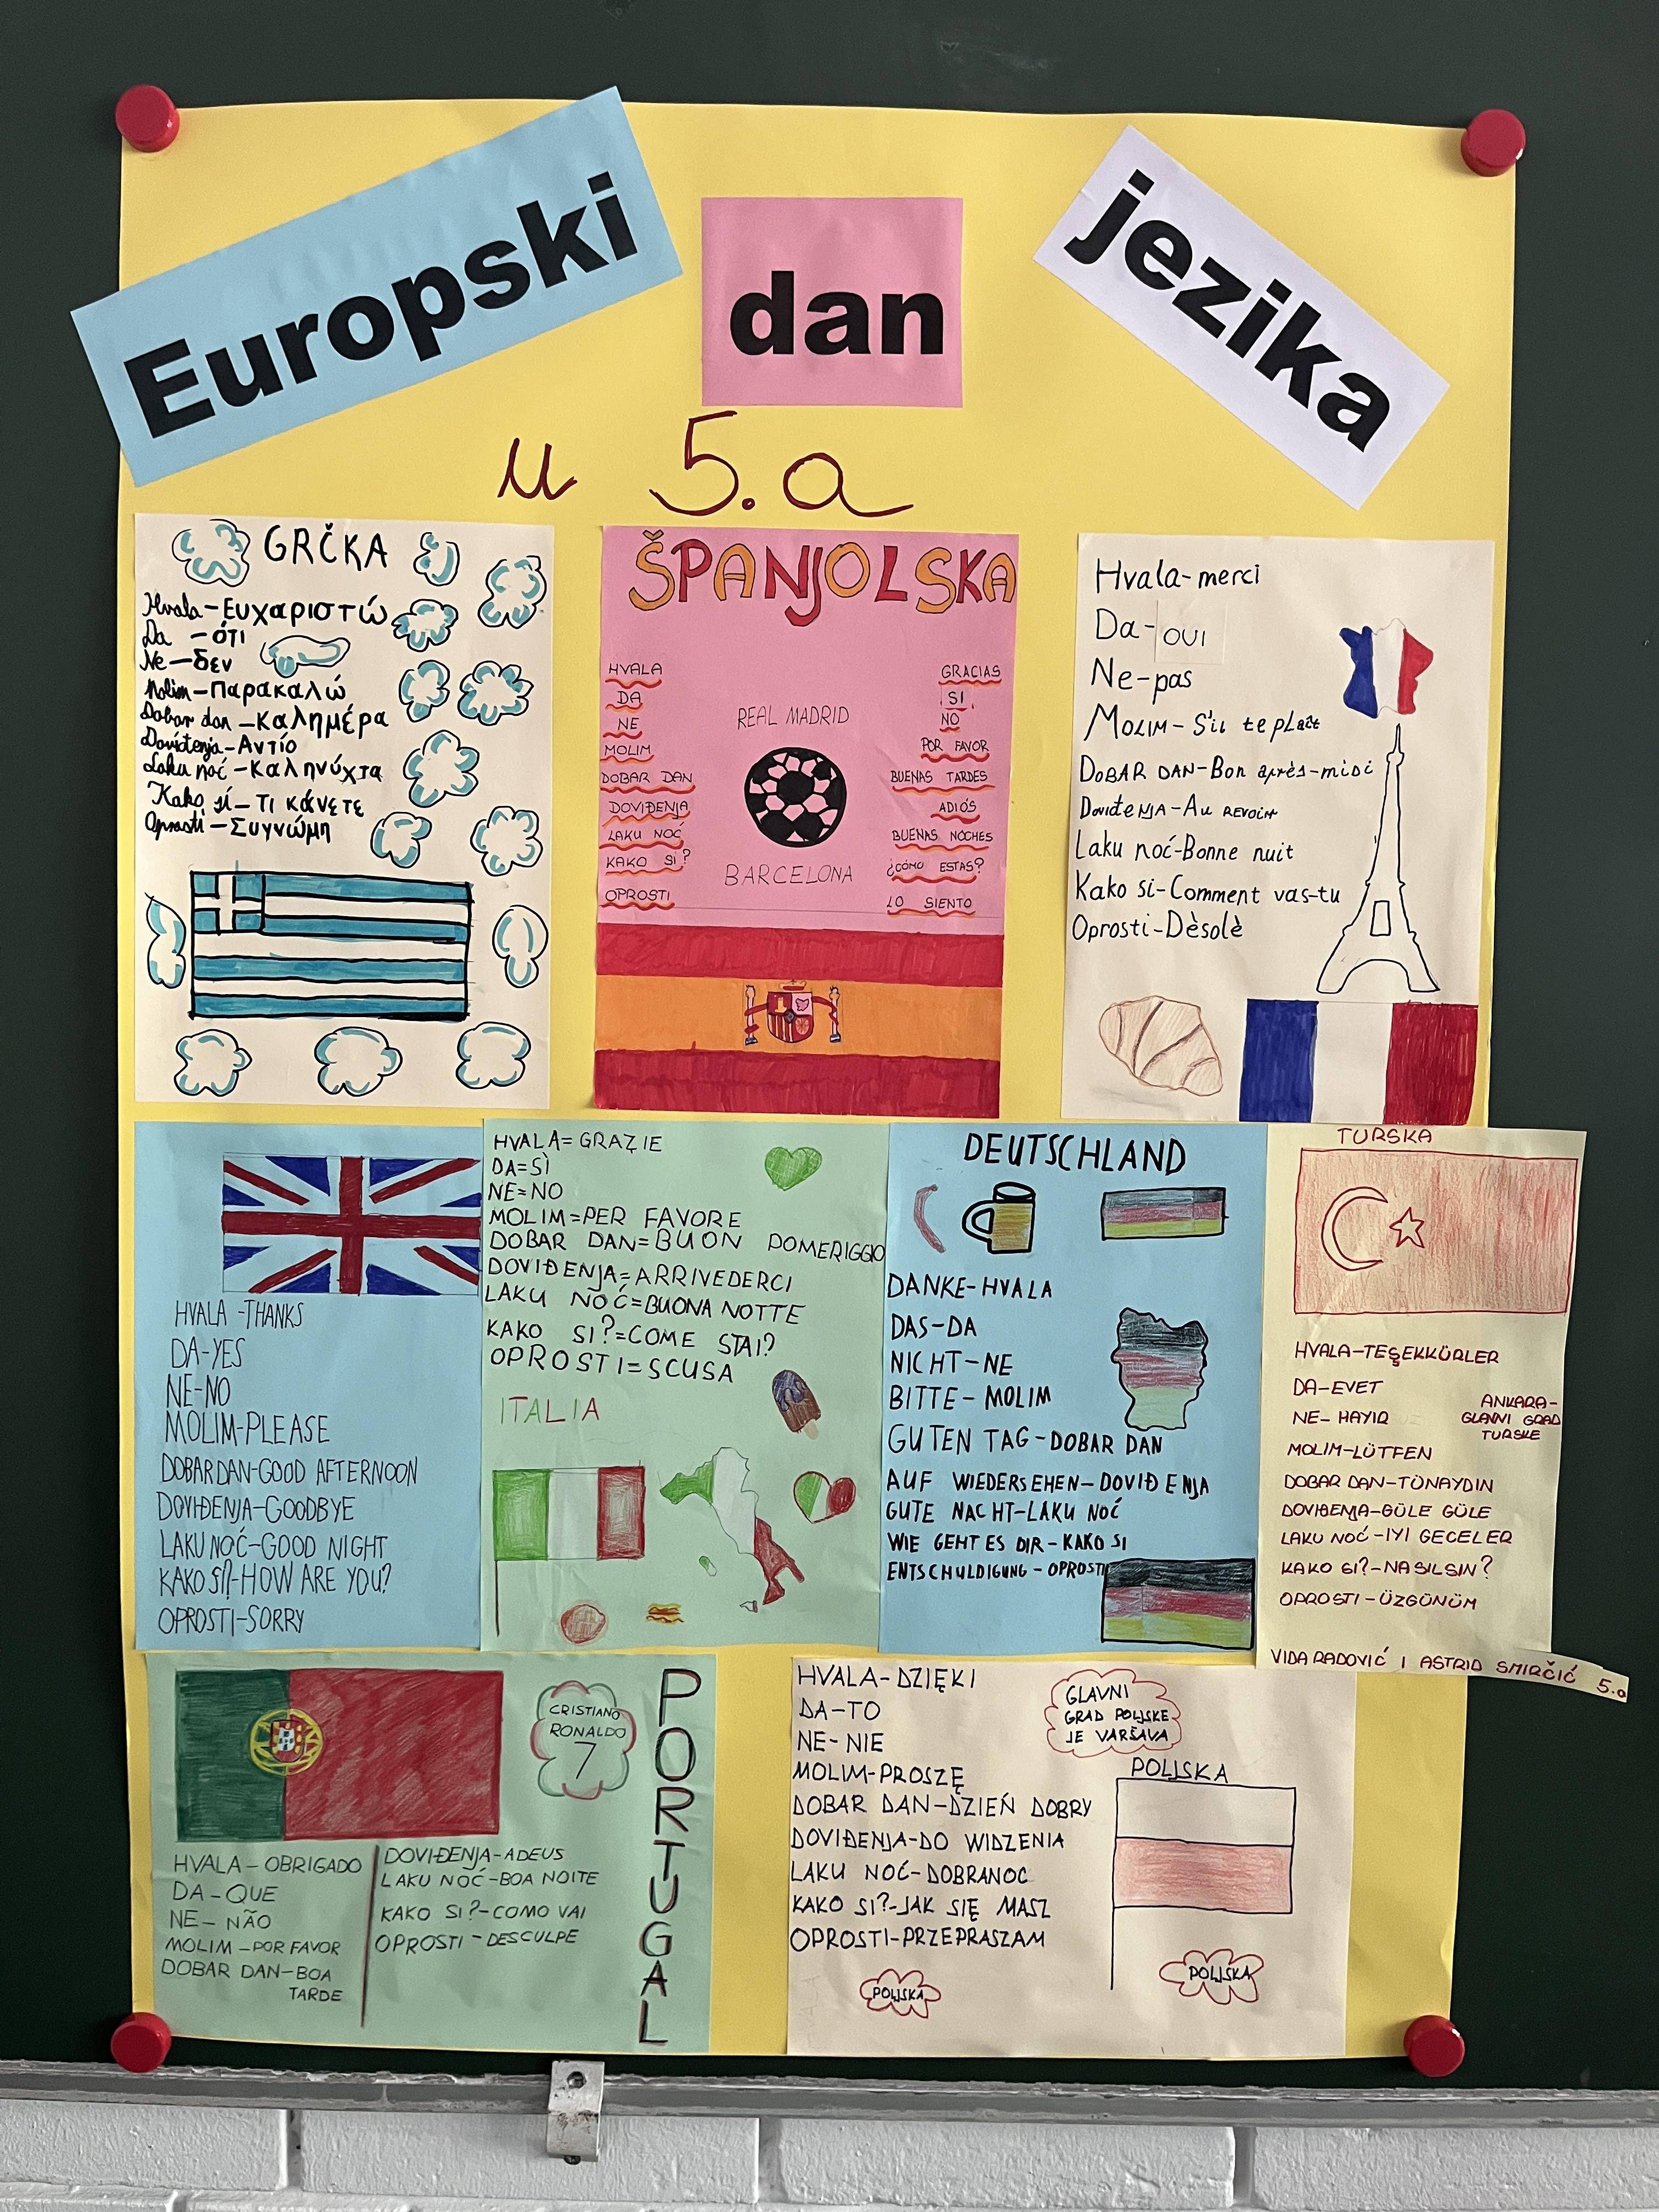 Europski
dan
jezika
u 5.a
GRČKA
Hvala-Ευχαριστώ
Da -ότι
Ne-δεν
Molim-Παρακαλώ
Dobar dan-Καλημέρα
Doviđenja-Αντίο
Laku noć-Καληνύχτα
Kako si-Τι κάνετε
Oprosti-Συγνώμη
ŠPANJOLSKA
HVALA GRACIAS
DA SI
NE NO
MOLIM POR FAVOR
DOBAR DAN BUENAS TARDES
DOVIĐENJA ADIÓS
LAKU NOĆ BUENAS NOCHES
KAKO SI? ¿CÓMO ESTAS?
OPROSTI LO SIENTO
REAL MADRID
BARCELONA
Hvala-merci
Da-OUI
Ne-pas
MOLIM-S'il te plaît
DOBAR DAN-Bon après-midi
DoviđeNJA-Au REVOIR
Laku noć-Bonne nuit
Kako si-Comment vas-tu
Oprosti-Dèsolè
HVALA-THANKS
DA-YES
NE-NO
MOLIM-PLEASE
DOBAR DAN-GOOD AFTERNOON
DOVIĐENJA-GOODBYE
LAKU NOĆ-GOOD NIGHT
KAKO SI?-HOW ARE YOU?
OPROSTI-SORRY
HVALA=GRAZIE
DA=SÌ
NE=NO
MOLIM=PER FAVORE
DOBAR DAN=BUON POMERIGGIO
DOVIĐENJA=ARRIVEDERCI
LAKU NOĆ=BUONA NOTTE
KAKO SI?=COME STAI?
OPROSTI=SCUSA
ITALIA
DEUTSCHLAND
DANKE-HVALA
DAS-DA
NICHT-NE
BITTE-MOLIM
GUTEN TAG-DOBAR DAN
AUF WIEDERSEHEN-DOVIĐENJA
GUTE NACHT-LAKU NOĆ
WIE GEHT ES DIR-KAKO SI
ENTSCHULDIGUNG-OPROSTI
TURSKA
HVALA-TEŞEKKÜRLER
DA-EVET
NE-HAYIR
MOLIM-LÜTFEN
DOBAR DAN-TÜNAYDIN
DOVIĐENJA-GÜLE GÜLE
LAKU NOĆ-IYI GECELER
KAKO SI?-NASILSIN?
OPROSTI-ÜZGÜNÜM
ANKARA-
GLAVNI GRAD
TURSKE
VIDA RADOVIĆ I ASTRID SMIRČIĆ 5.a
CRISTIANO
RONALDO
7
PORTUGAL
HVALA-OBRIGADO
DA-QUE
NE-NÃO
MOLIM-POR FAVOR
DOBAR DAN-BOA
TARDE
DOVIĐENJA-ADEUS
LAKU NOĆ-BOA NOITE
KAKO SI?-COMO VAI
OPROSTI-DESCULPE
HVALA-DZIĘKI
DA-TO
NE-NIE
MOLIM-PROSZĘ
DOBAR DAN-DZIEŃ DOBRY
DOVIĐENJA-DO WIDZENIA
LAKU NOĆ-DOBRANOC
KAKO SI?-JAK SIĘ MASZ
OPROSTI-PRZEPRASZAM
GLAVNI
GRAD POLJSKE
JE VARŠAVA
POLJSKA
POLJSKA
POLJSKA